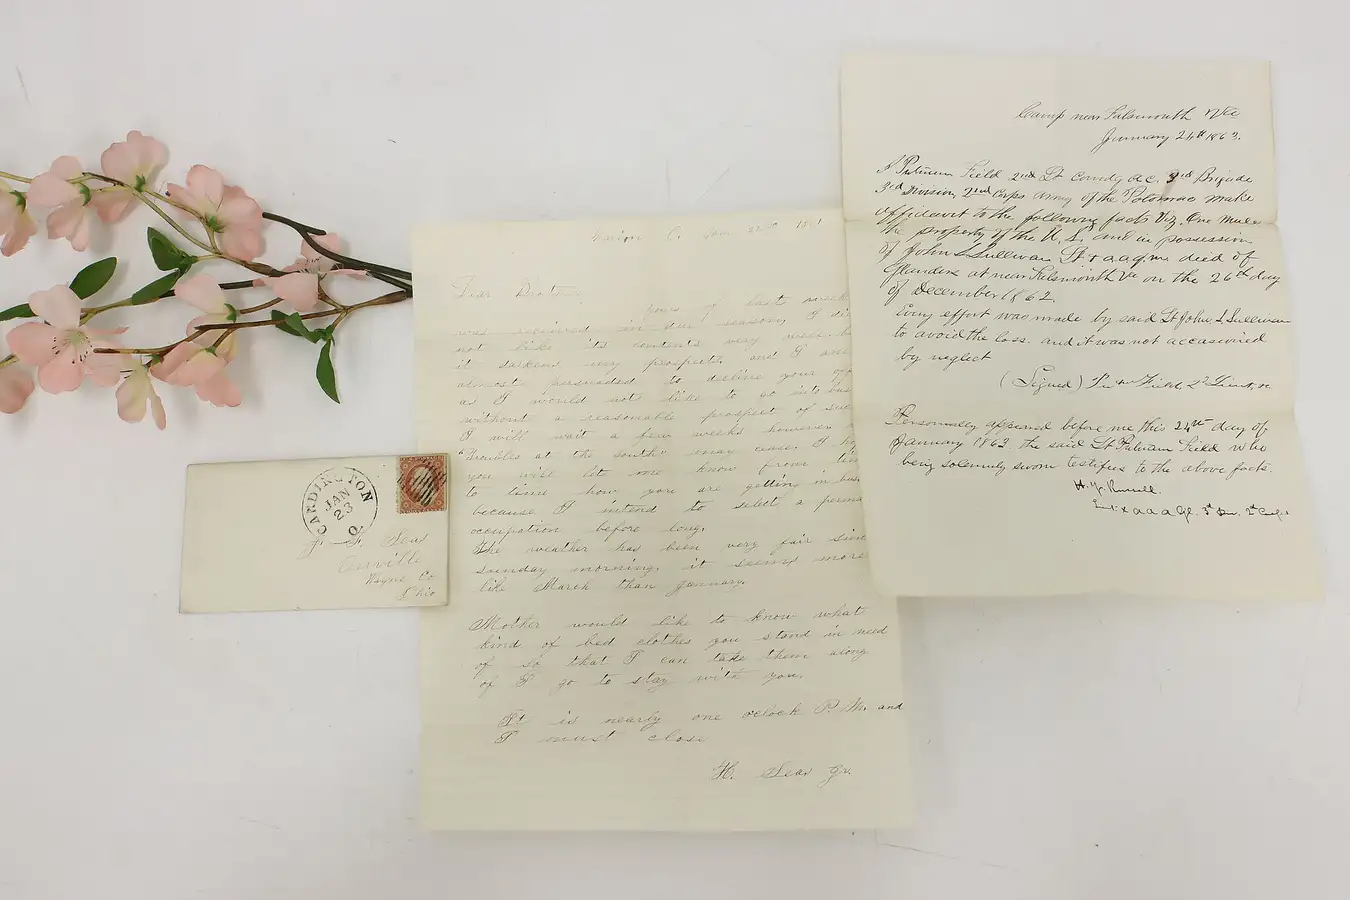 CARDINGTON
JAN
23
O.
J. F. Seas
Orrville
Wayne Co
Ohio
Marion O. Jan 22nd 1861
Dear Brother
yours of last week
was received in due season, I di
not like its contents very
it darkens my prospects and I am
almost persuaded to decline your
as I would not like to go into bus
without a reasonable prospect of suc
I will wait a few weeks however
"Troubles at the south" may cease. I ho
you will let me know from ti
to time how you are getting in bus
because I intend to select a perma
occupation before long.
The weather has been very fair sinc
sunday morning, it seems more
like March than January.
Mother would like to know what
kind of bed clothes you stand in need
of so that I can take them along
if I go to stay with you.
It is nearly one oclock P.M. and
I must close
H. Seas Jr.
Camp near Falsmouth Va
January 24th 1863.
I Putnam Field 2nd Lt Comdg A.C. 3rd Brigade
3rd Division, 2nd Corps army of the Potomac make
affidavit to the following facts Viz. One Mule
the property of the U.S. and in possession
of John L Sullivan Lt & a a q m died of
Glanders at near Falsmouth Va on the 26th day
of December 1862.
Every effort was made by said Lt John L Sullivan
to avoid the loss. and it was not accasioned
by neglect
(Signed) Putm Field 2d Lieut
Personally appeared before me this 24th day of
January 1863 the said Lt Putnam Field who
being solemnly sworn testifies to the above facts.
H. Y. Russell.
Lt & a a a Gl. 3d Div. 2d Corps